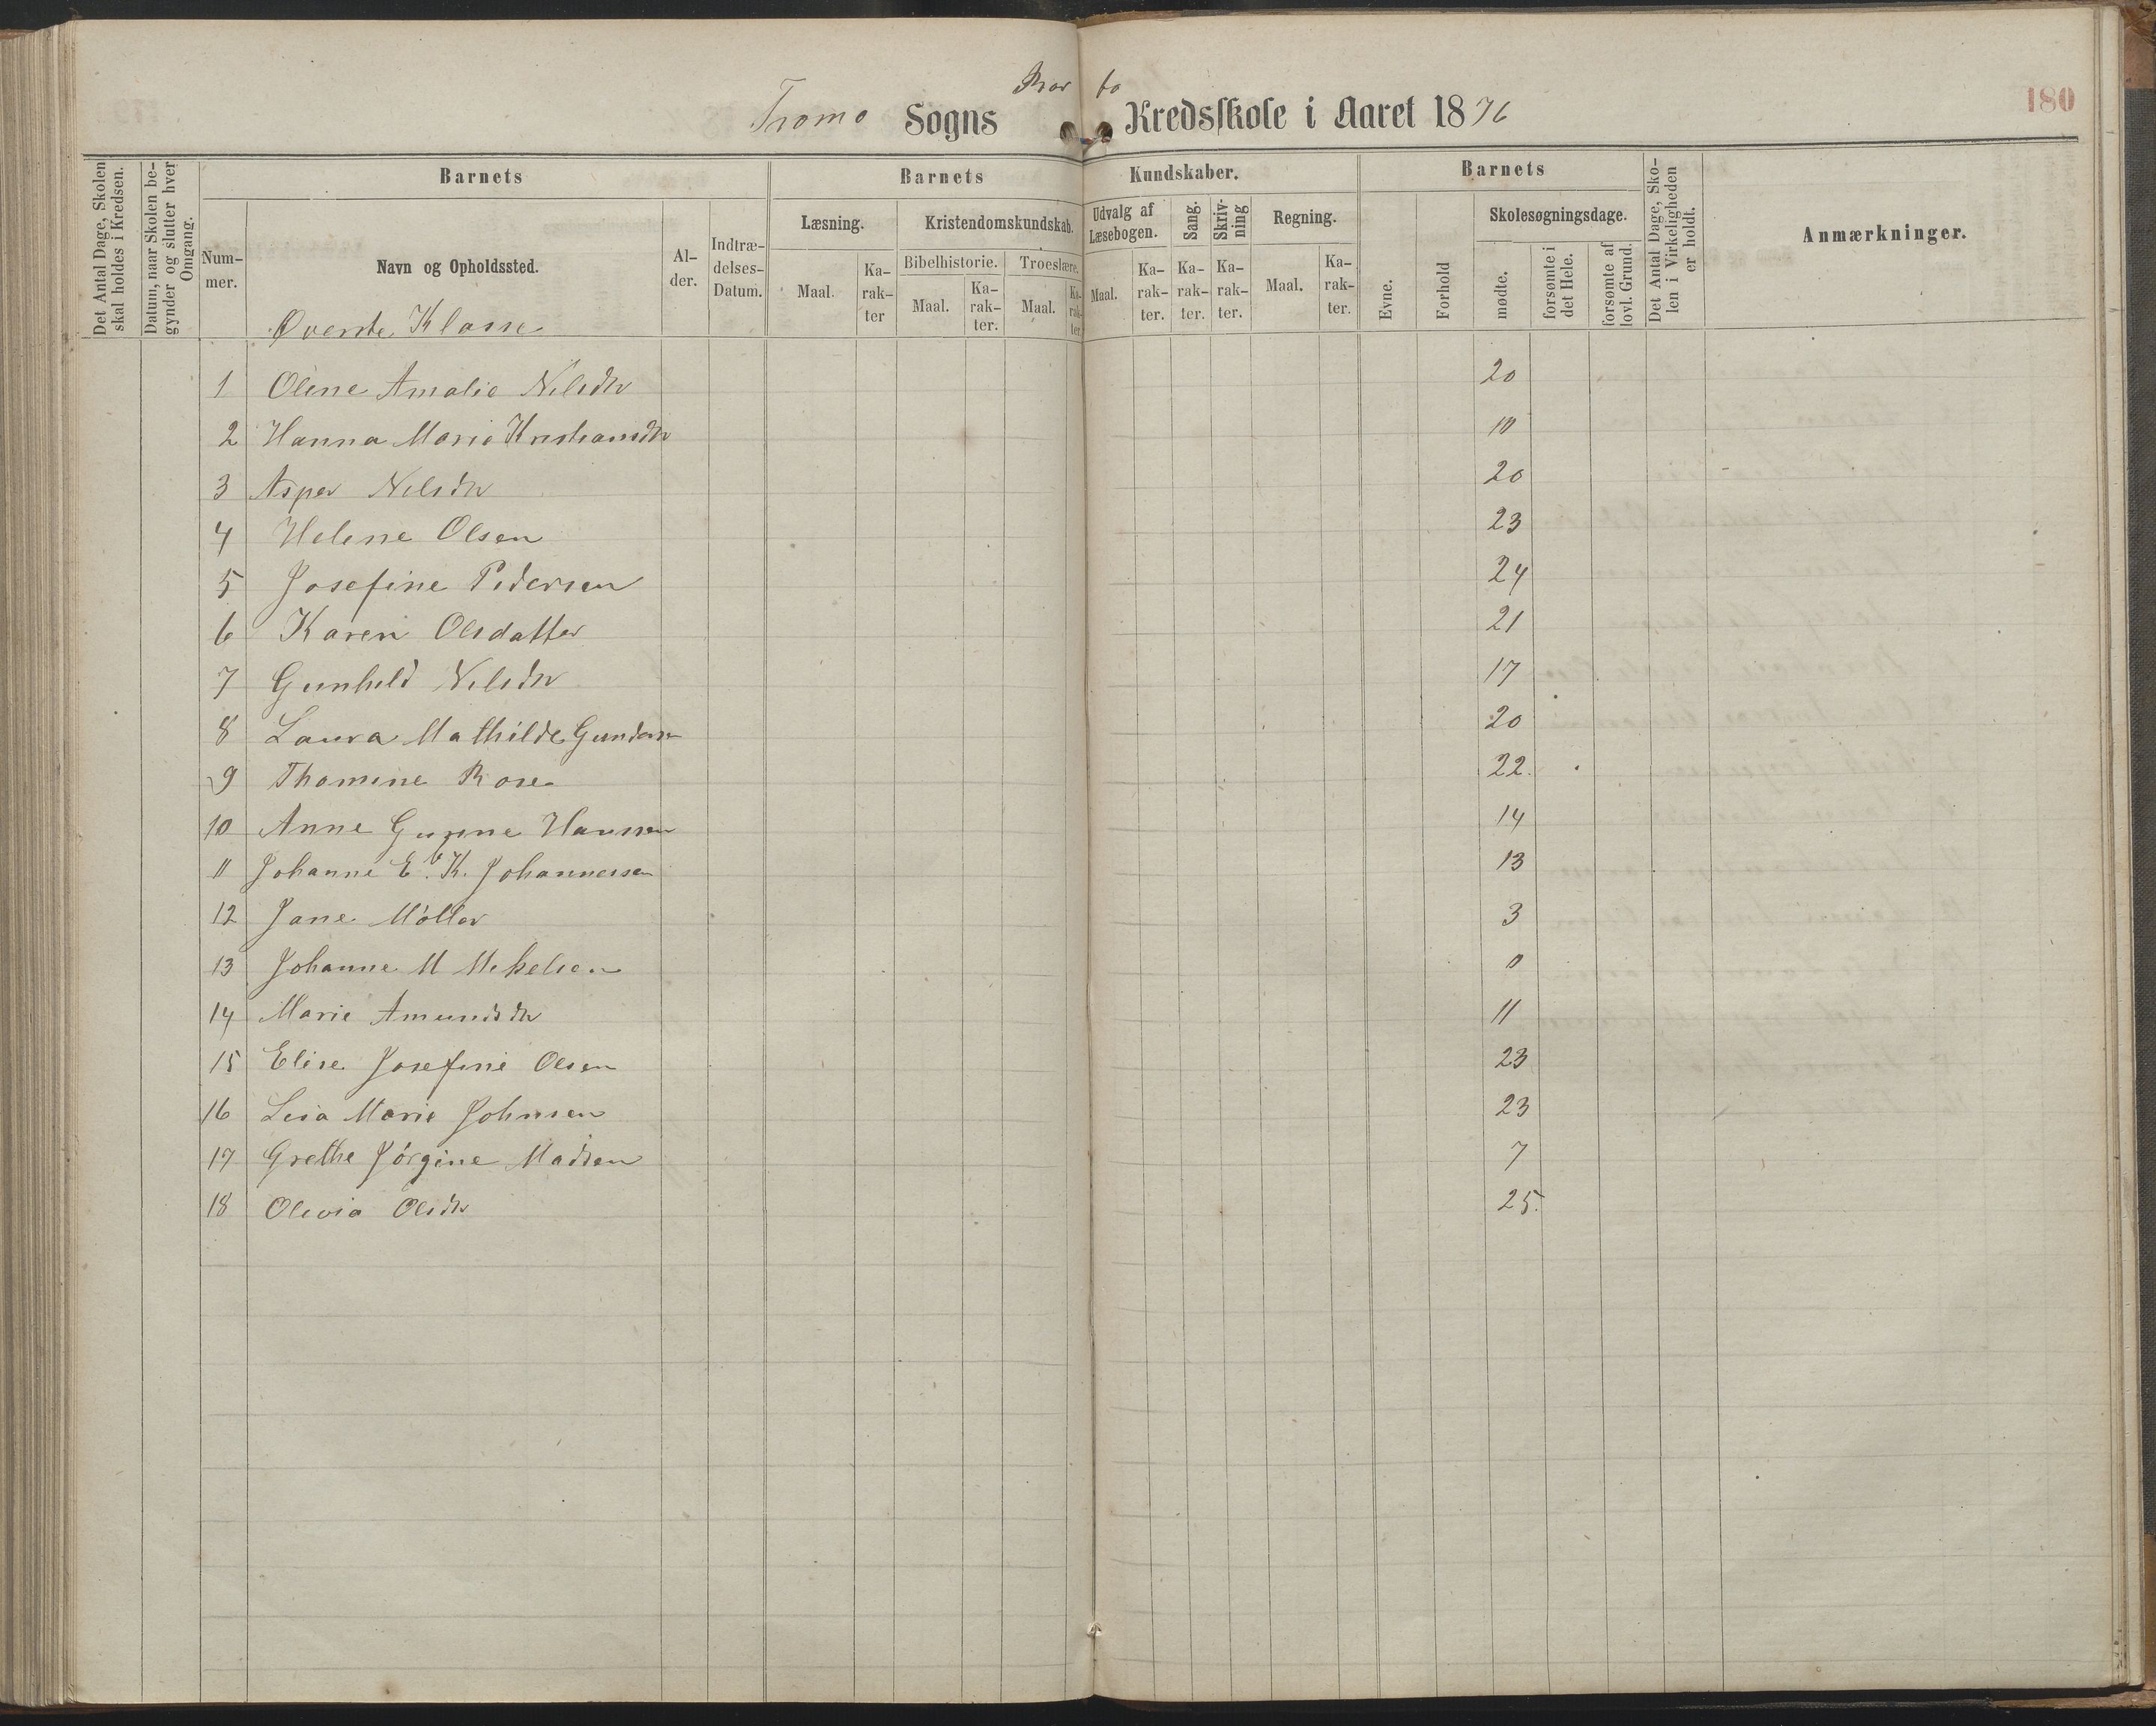 Tromø Sogns Kredsskole i Aaret 1876
180
Det Antal Dage, Skolen skal holdes i Kredsen.
Datum, naar Skolen begynder og slutter hver Omgang.
Barnets
Barnets Kundskaber.
Barnets
Det Antal Dage, Skolen i Virkeligheden er holdt.
Anmærkninger.
Nummer.
Navn og Opholdssted.
Alder.
Indtrædelses-Datum.
Læsning.
Kristendomskundskab.
Udvalg af Læsebogen.
Sang.
Skrivning
Regning.
Evne.
Forhold
Skolesøgningsdage.
Bibelhistorie.
Troeslære.
Maal.
Karakter
Maal.
Karakter.
Maal.
Karakter.
Maal.
Karakter.
Karakter.
Karakter.
Maal.
Karakter.
mødte.
forsømte i det Hele.
forsømte af lovl. Grund.
Øverste Klasse
1 Oline Amalie Nilsdtr 20
2 Hanna Marie Kristiansdtr 10
3 Asper Nilsdtr 20
4 Helene Olsen 23
5 Josefine Pedersen 24
6 Karen Olsdatter 21
7 Gunhild Nilsdtr 17
8 Laura Mathilde Gundersen 20
9 Thomine Rose 22.
10 Anne Gunne Hanssen 14
11 Johanne E. K. Johannessen 13
12 Jane Møller 3
13 Johanne M Mikelsen 0
14 Marie Amundsdtr 11
15 Elise Josefine Olsen 23
16 Lisa Marie Johnsen 23
17 Grethe Jörgine Madsen 7
18 Olivia Olsdtr 25.